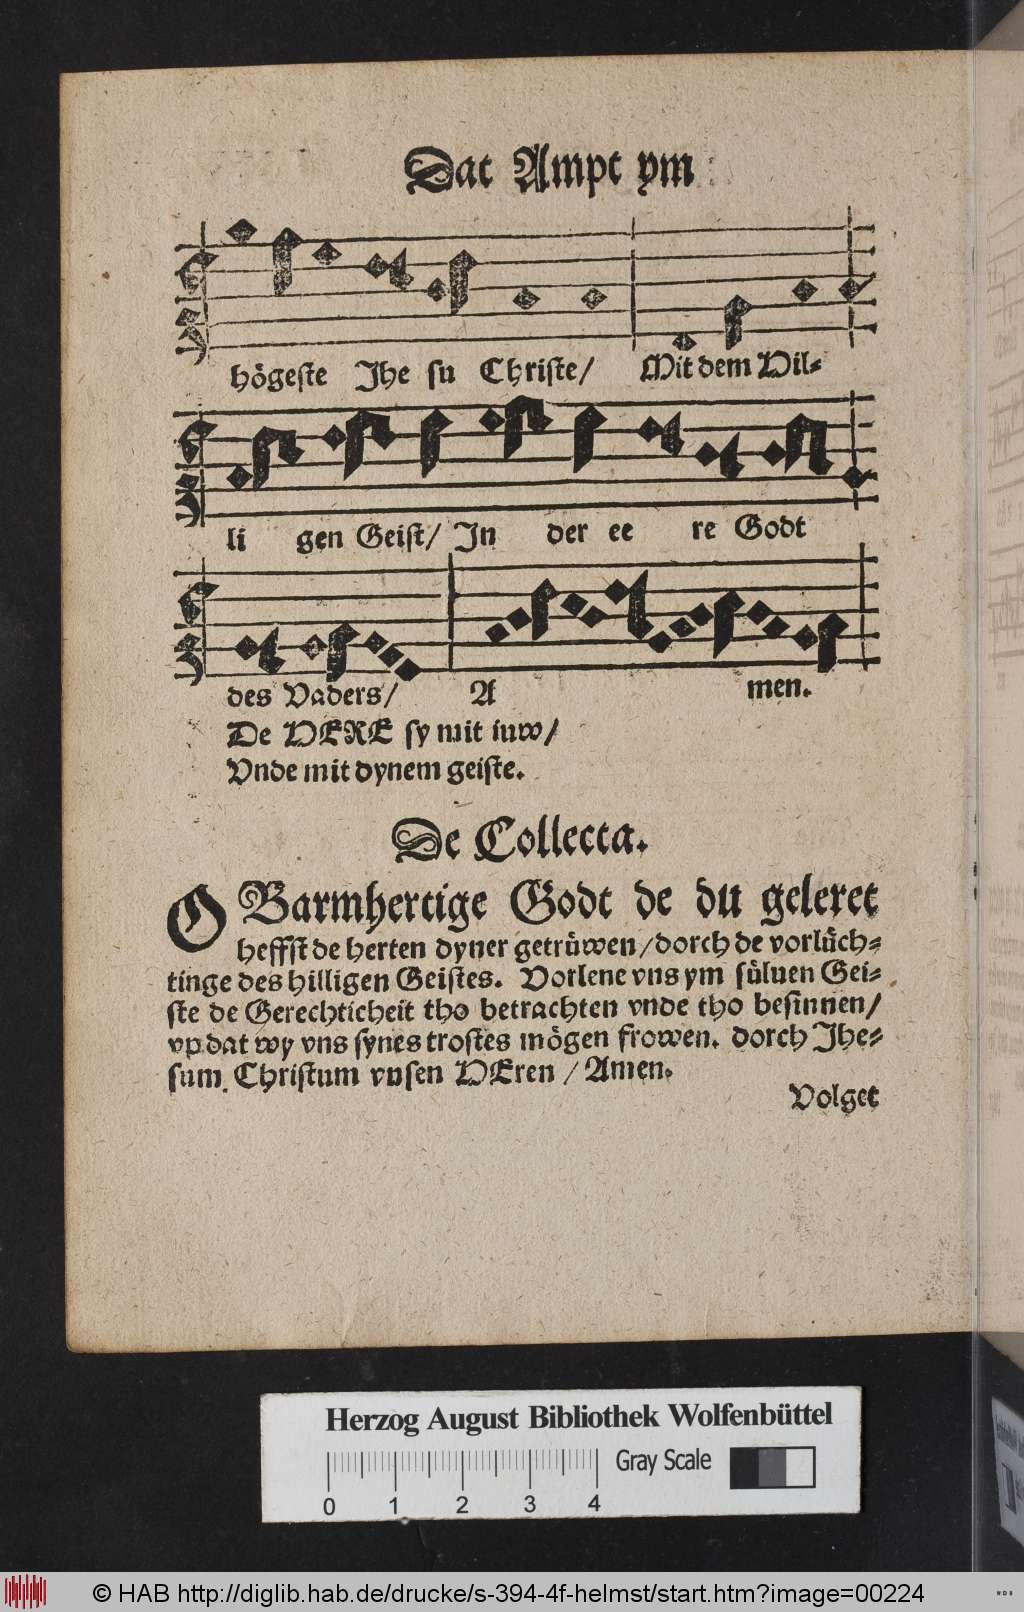 Dat Ampt ym
högeste Jhe su Christe/ Mit dem Hil-
li gen Geist/ In der ee re Godt
des Vaders/ A men.
De HERE sy mit iuw/
Vnde mit dynem geiste.
De Collecta.
O Barmhertige Godt de du geleret
heffst de herten dyner getrüwen/dorch de vorlüch-
tinge des hilligen Geistes. Vorlene vns ym sülven Gei-
ste de Gerechticheit tho betrachten vnde tho besinnen/
vp dat wy vns synes trostes mögen frowen. dorch Jhe-
sum Christum vnsen HEren / Amen.
Volget
Herzog August Bibliothek Wolfenbüttel
Gray Scale
0 1 2 3 4
© HAB http://diglib.hab.de/drucke/s-394-4f-helmst/start.htm?image=00224